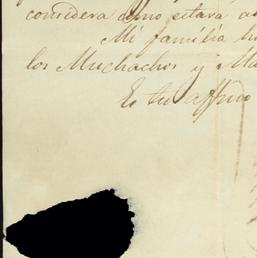 considera como estará a
Mi familia
los Muchachos y Ma
Es tu affmo